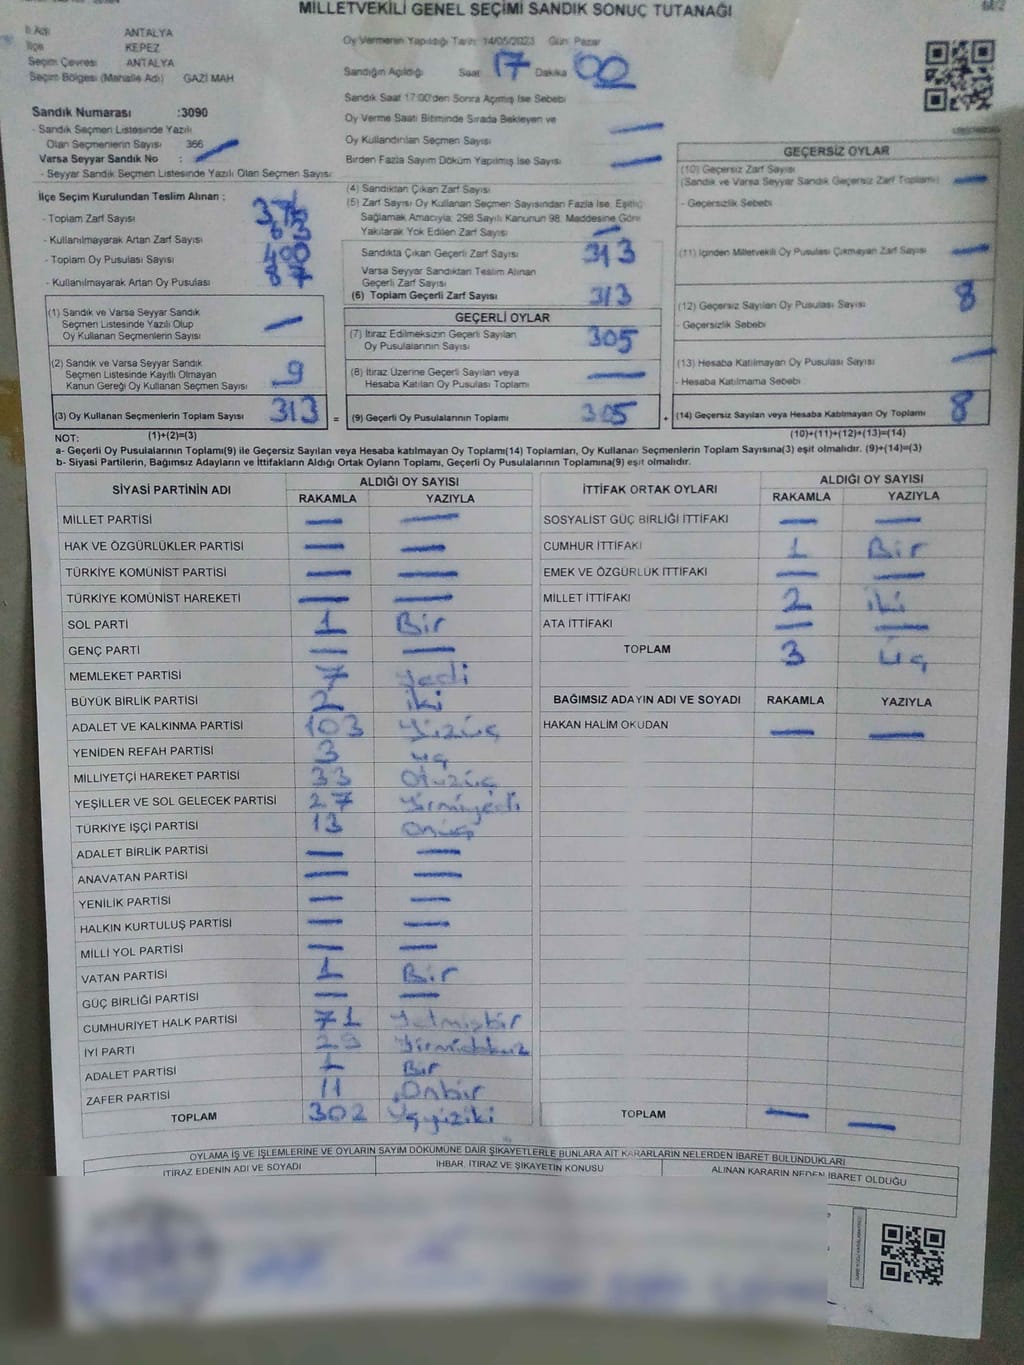 MİLLETVEKİLİ GENEL SEÇİMİ SANDIK SONUÇ TUTANAĞI
İl Adı ANTALYA
İlçe KEPEZ
Seçim Çevresi ANTALYA
Seçim Bölgesi (Mahalle Adı) GAZİ MAH
Oy Vermenin Yapıldığı Tarih: 14/05/2023 Gün: Pazar
Sandığın Açıldığı Saat 17 Dakika 00
Sandık Saat 17:00'den Sonra Açılmış İse Sebebi
Oy Verme Saati Bitiminde Sırada Bekleyen ve
Oy Kullandırılan Seçmen Sayısı: —
Birden Fazla Sayım Döküm Yapılmış İse Sayısı: —
Sandık Numarası :3090
- Sandık Seçmen Listesinde Yazılı
Olan Seçmenlerin Sayısı 366
Varsa Seyyar Sandık No : —
- Seyyar Sandık Seçmen Listesinde Yazılı Olan Seçmen Sayısı:
İlçe Seçim Kurulundan Teslim Alınan :
- Toplam Zarf Sayısı
- Kullanılmayarak Artan Zarf Sayısı 63
- Toplam Oy Pusulası Sayısı 400
- Kullanılmayarak Artan Oy Pusulası 87
(1) Sandık ve Varsa Seyyar Sandık
Seçmen Listesinde Yazılı Olup
Oy Kullanan Seçmenlerin Sayısı —
(2) Sandık ve Varsa Seyyar Sandık
Seçmen Listesinde Kayıtlı Olmayan
Kanun Gereği Oy Kullanan Seçmen Sayısı 9
(3) Oy Kullanan Seçmenlerin Toplam Sayısı 313 =
(4) Sandıktan Çıkan Zarf Sayısı
(5) Zarf Sayısı Oy Kullanan Seçmen Sayısından Fazla İse, Eşitliği
Sağlamak Amacıyla, 298 Sayılı Kanunun 98. Maddesine Göre
Yakılarak Yok Edilen Zarf Sayısı —
Sandıkta Çıkan Geçerli Zarf Sayısı 313
Varsa Seyyar Sandıktan Teslim Alınan
Geçerli Zarf Sayısı
(6) Toplam Geçerli Zarf Sayısı 313
GEÇERLİ OYLAR
(7) İtiraz Edilmeksizin Geçerli Sayılan
Oy Pusulalarının Sayısı 305
(8) İtiraz Üzerine Geçerli Sayılan veya
Hesaba Katılan Oy Pusulası Toplamı —
(9) Geçerli Oy Pusulalarının Toplamı 305 +
GEÇERSİZ OYLAR
(10) Geçersiz Zarf Sayısı
(Sandık ve Varsa Seyyar Sandık Geçersiz Zarf Toplamı) —
- Geçersizlik Sebebi
(11) İçinden Milletvekili Oy Pusulası Çıkmayan Zarf Sayısı —
(12) Geçersiz Sayılan Oy Pusulası Sayısı 8
- Geçersizlik Sebebi
(13) Hesaba Katılmayan Oy Pusulası Sayısı —
- Hesaba Katılmama Sebebi
(14) Geçersiz Sayılan veya Hesaba Katılmayan Oy Toplamı 8
NOT: (1)+(2)=(3) (10)+(11)+(12)+(13)=(14)
a- Geçerli Oy Pusulalarının Toplamı(9) ile Geçersiz Sayılan veya Hesaba katılmayan Oy Toplamı(14) Toplamları, Oy Kullanan Seçmenlerin Toplam Sayısına(3) eşit olmalıdır. (9)+(14)=(3)
b- Siyasi Partilerin, Bağımsız Adayların ve İttifakların Aldığı Ortak Oyların Toplamı, Geçerli Oy Pusulalarının Toplamına(9) eşit olmalıdır.
SİYASİ PARTİNİN ADI ALDIĞI OY SAYISI
RAKAMLA YAZIYLA
MİLLET PARTİSİ — —
HAK VE ÖZGÜRLÜKLER PARTİSİ — —
TÜRKİYE KOMÜNİST PARTİSİ — —
TÜRKİYE KOMÜNİST HAREKETİ — —
SOL PARTİ 1 Bir
GENÇ PARTİ — —
MEMLEKET PARTİSİ 7 yedi
BÜYÜK BİRLİK PARTİSİ 2 iki
ADALET VE KALKINMA PARTİSİ 103 Yüzüç
YENİDEN REFAH PARTİSİ 3 üç
MİLLİYETÇİ HAREKET PARTİSİ 33 Otuzüç
YEŞİLLER VE SOL GELECEK PARTİSİ 27 Yirmiyedi
TÜRKİYE İŞÇİ PARTİSİ 13 onüç
ADALET BİRLİK PARTİSİ — —
ANAVATAN PARTİSİ — —
YENİLİK PARTİSİ — —
HALKIN KURTULUŞ PARTİSİ — —
MİLLİ YOL PARTİSİ — —
VATAN PARTİSİ 1 Bir
GÜÇ BİRLİĞİ PARTİSİ — —
CUMHURİYET HALK PARTİSİ 71 Yetmişbir
İYİ PARTİ 29 Yirmidokuz
ADALET PARTİSİ 1 Bir
ZAFER PARTİSİ 11 Onbir
TOPLAM 302 Üçyüziki
İTTİFAK ORTAK OYLARI ALDIĞI OY SAYISI
RAKAMLA YAZIYLA
SOSYALİST GÜÇ BİRLİĞİ İTTİFAKI — —
CUMHUR İTTİFAKI 1 Bir
EMEK VE ÖZGÜRLÜK İTTİFAKI — —
MİLLET İTTİFAKI 2 iki
ATA İTTİFAKI — —
TOPLAM 3 üç
BAĞIMSIZ ADAYIN ADI VE SOYADI RAKAMLA YAZIYLA
HAKAN HALİM OKUDAN — —
TOPLAM — —
OYLAMA İŞ VE İŞLEMLERİNE VE OYLARIN SAYIM DÖKÜMÜNE DAİR ŞİKAYETLERLE BUNLARA AİT KARARLARIN NELERDEN İBARET BULUNDUKLARI
İTİRAZ EDENİN ADI VE SOYADI İHBAR, İTİRAZ VE ŞİKAYETİN KONUSU ALINAN KARARIN NEDEN İBARET OLDUĞU